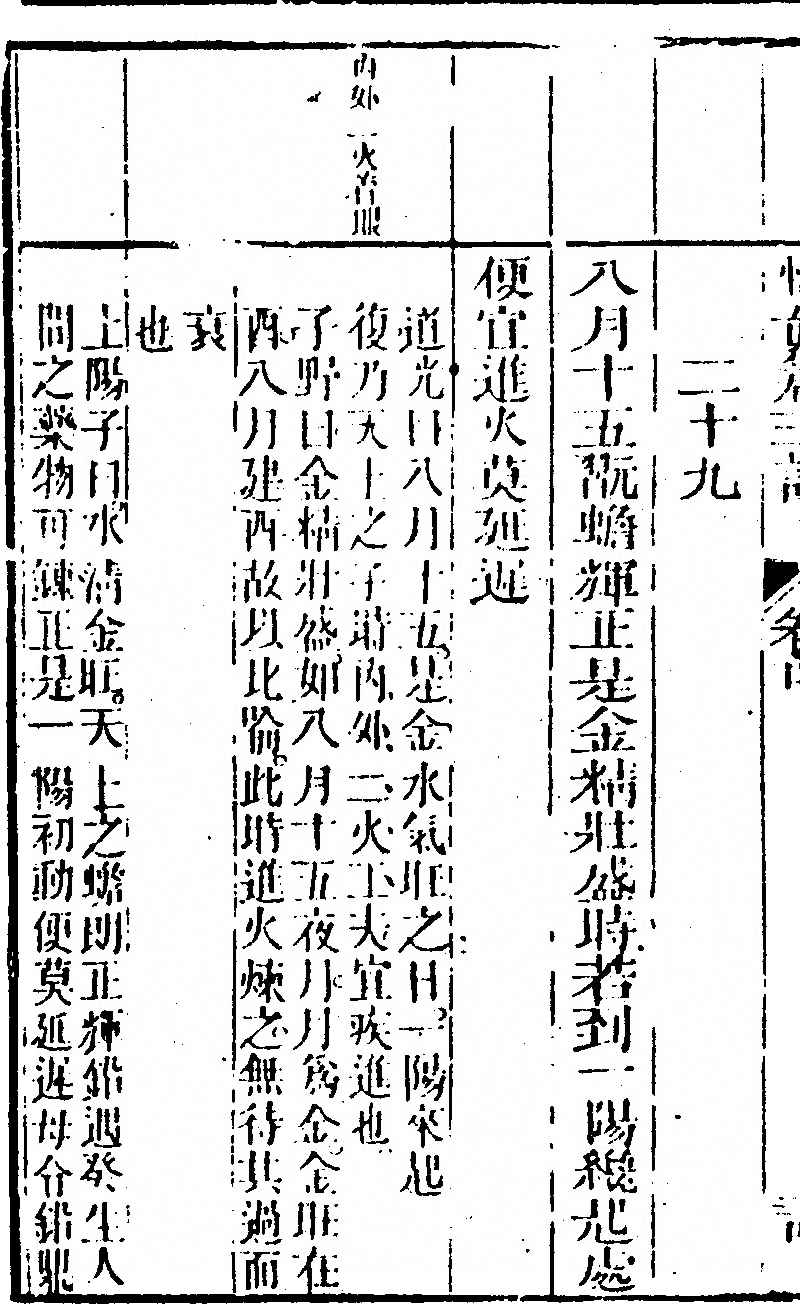 悟真篇三註 卷中
二十九
八月十五翫蟾輝正是金精壯盛時若到一陽纔起處
便宜進火莫延遲
道光曰八月十五是金水氣旺之日一陽來起
復乃天上之子時內外二火工夫宜疾進也
子野曰金精壯盛如八月十五夜月月為金金旺在
酉八月建酉故以比喻此時進火煉之無待其過而
衰
也
上陽子曰水清金旺天上之蟾朗正輝鉛遇癸生人
間之藥物可鍊正是一陽初動便莫延遲毋令鉛鼎
內外二火若眼